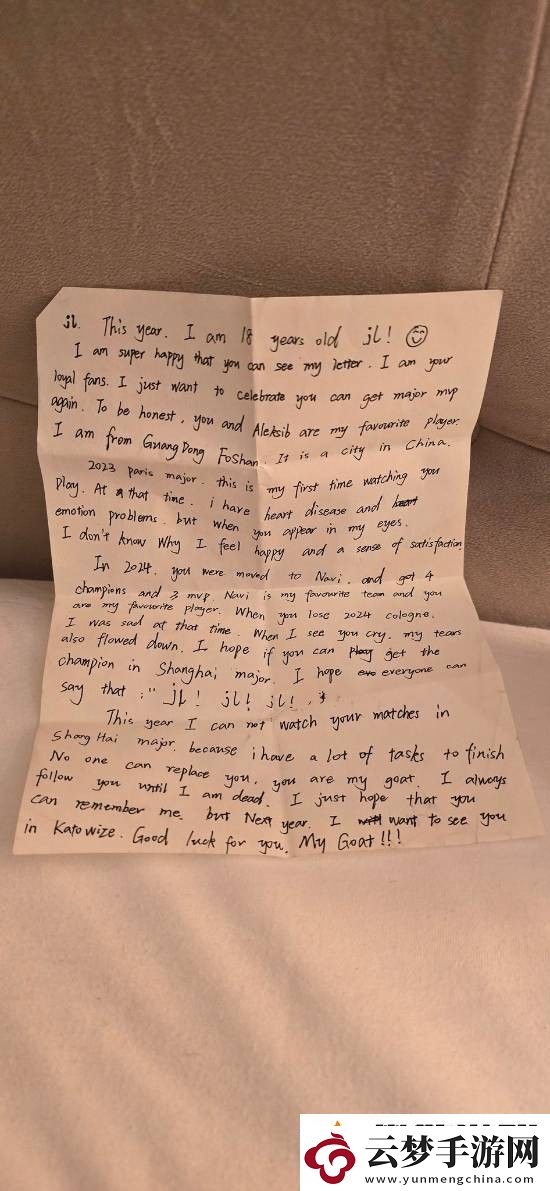 jl. This year. I am 18 years old jl!
I am super happy that you can see my letter. I am your
loyal fans. I just want to celebrate you can get major mvp
again. To be honest, you and Aleksib are my favourite player.
I am from GuangDong FoShan. It is a city in China.
2023 paris major. this is my first time watching you
play. At that time. i have heart disease and
emotion problems. but when you appear in my eyes.
I don't know why I feel happy and a sense of satisfaction
In 2024. you were moved to Navi. and got 4
champions and 3 mvp. Navi is my favourite team and you
are my favourite player. When you lose 2024 cologne.
I was sad at that time. When I see you cry. my tears
also flowed down. I hope if you can get the
champion in Shanghai major. I hope everyone can
say that : " jl! jl! jl! "
This year I can not watch your matches in
ShangHai major. because i have a lot of tasks to finish
No one can replace you. you are my goat. I always
follow you until I am dead. I just hope that you
can remember me. but Next year. I want to see you
in Katowize. Good luck for you. My Goat!!!
云梦手游网
www.yunmengchina.com